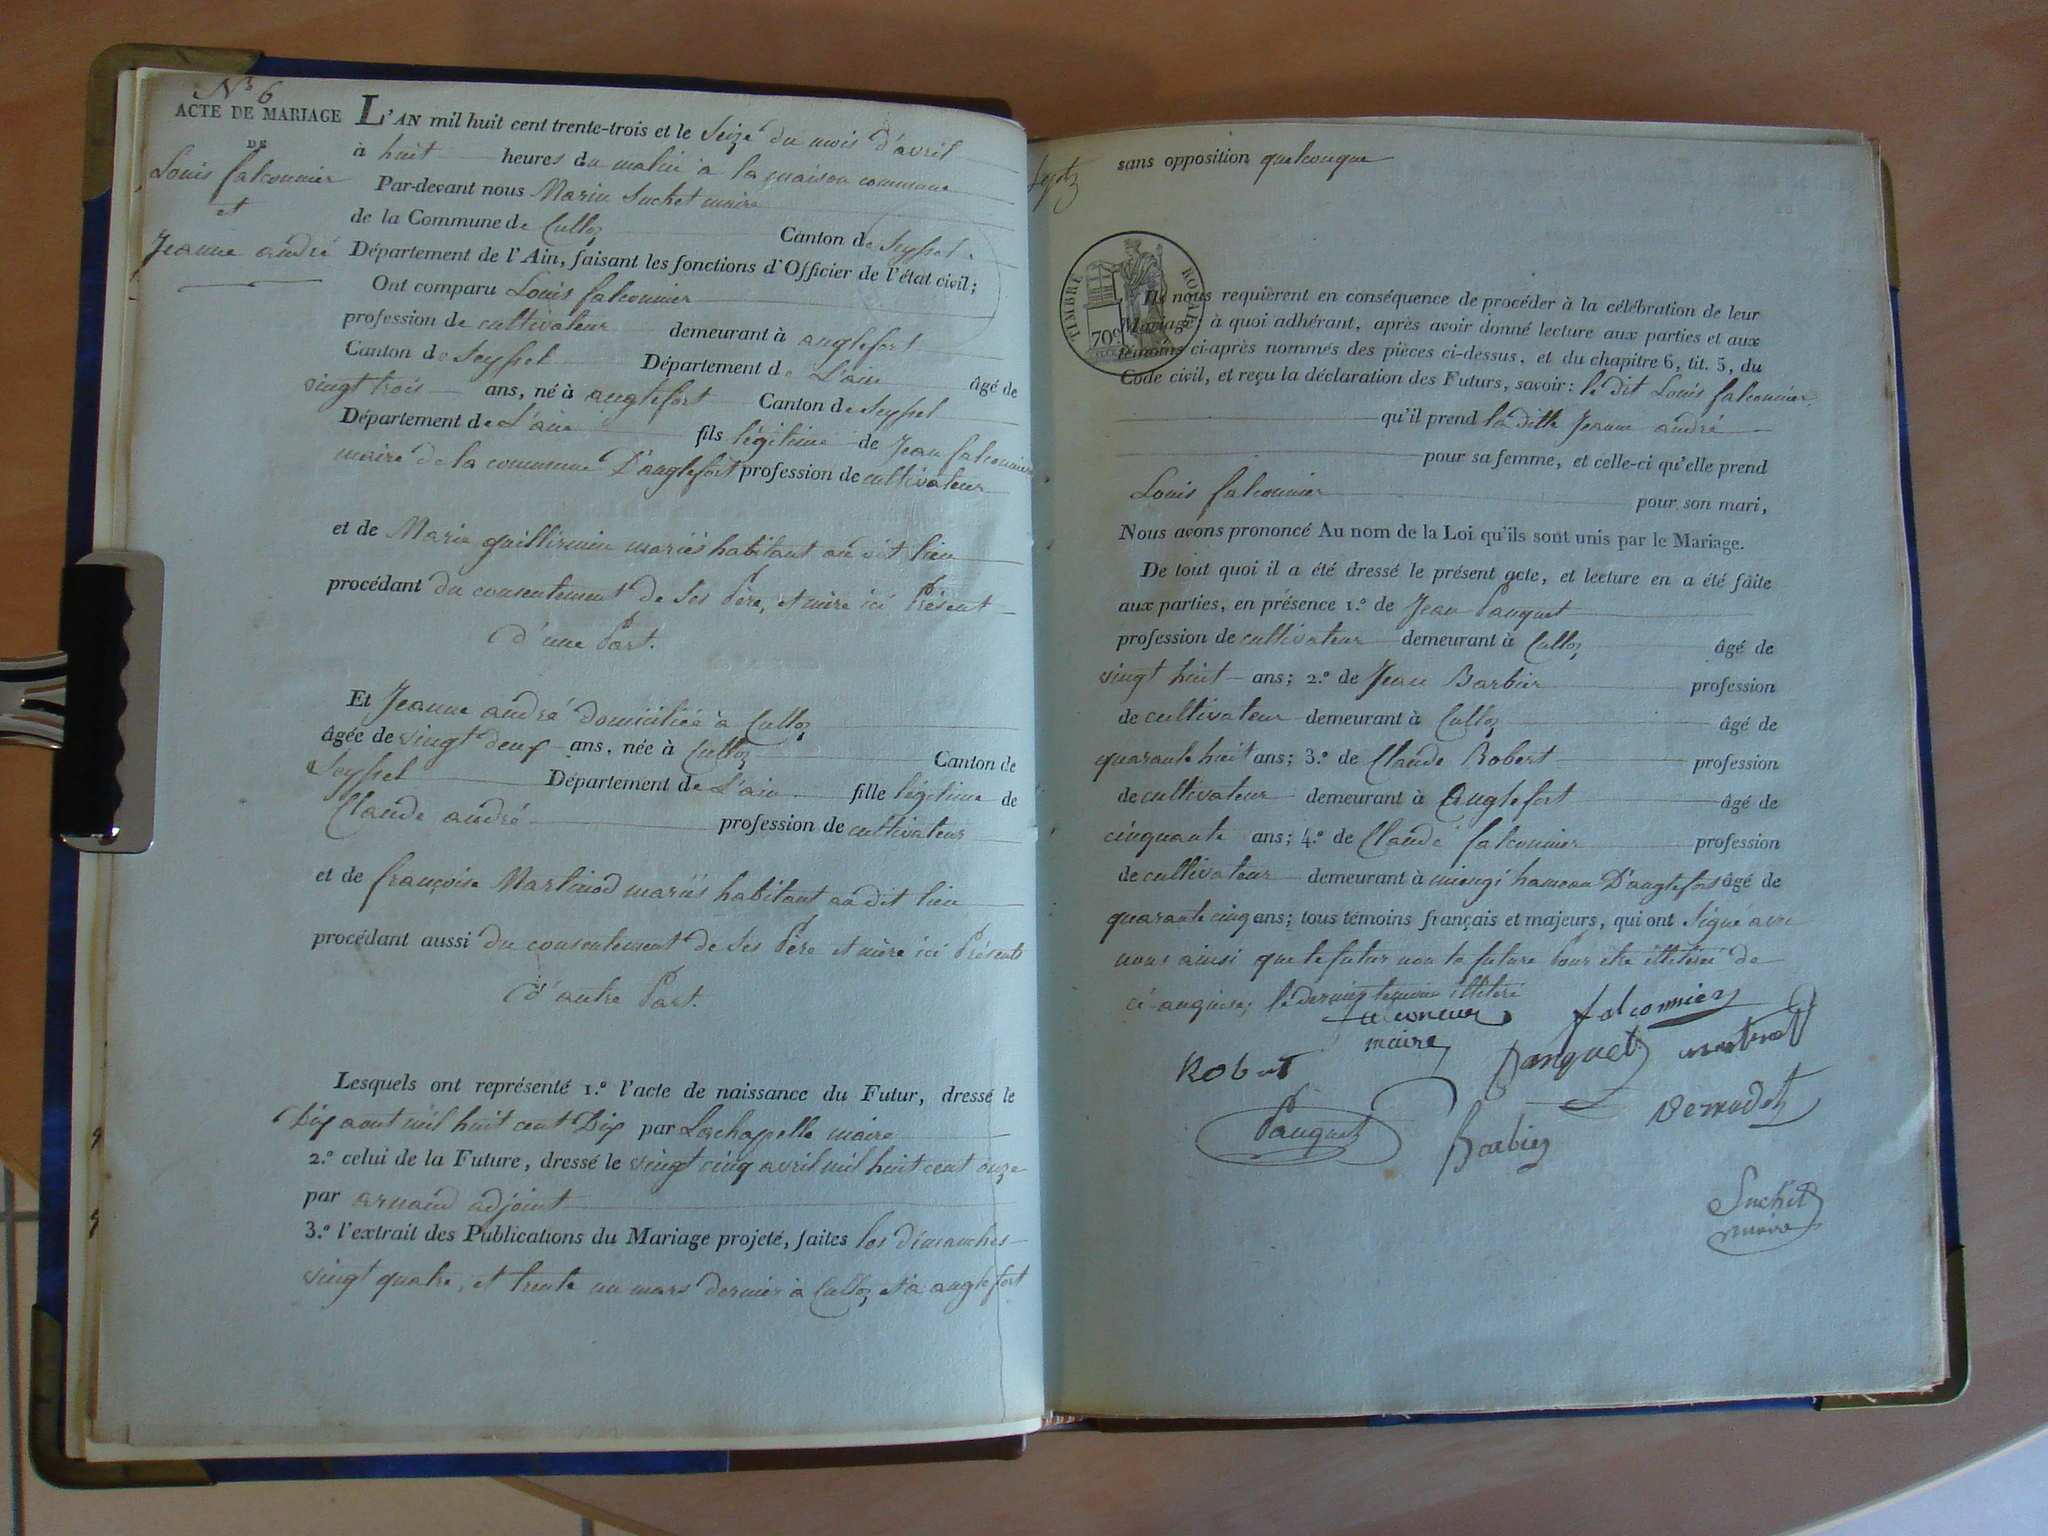 N° 6
ACTE DE MARIAGE
DE
Louis falconnier
et
Jeanne andré
L'AN mil huit cent trente-trois et le Seize du mois d'avril
à huit heures du matin à la maison commune
Par-devant nous Marin Suchet maire
de la Commune de Culloz Canton de Seyssel
Département de l'Ain, faisant les fonctions d'Officier de l'état civil;
Ont comparu Louis falconnier
profession de cultivateur demeurant à anglefort
Canton de Seyssel Département de L'ain âgé de
vingt trois ans, né à anglefort Canton de Seyssel
Département de L'ain fils légitime de Jean falconnier
maire de la commune D'anglefort profession de cultivateur
et de Marie guillermin mariés habitant au dit lieu
procédant du consentement de Ses Père, et mère ici Présent
d'une Part.
Et Jeanne andré domiciliée à Culloz
âgée de vingt deux ans, née à Culloz Canton de
Seyssel Département de L'ain fille légitime de
Claude andré profession de cultivateur
et de françoise Martinod mariés habitant au dit lieu
procédant aussi du consentement de Ses Père et mère ici Présents
d'autre Part.
Lesquels ont représenté 1.° l'acte de naissance du Futur, dressé le
Dix aout mil huit cent Dix par Lachapelle maire
2.° celui de la Future, dressé le vingt cinq avril mil huit cent onze
par arnaud adjoint
3.° l'extrait des Publications du Mariage projeté, faites les dimanches
vingt quatre, et trente un mars dernier à Culloz et à anglefort
sans opposition quelconque
TIMBRE ROYAL
70c
Ils nous requièrent en conséquence de procéder à la célébration de leur
Mariage; à quoi adhérant, après avoir donné lecture aux parties et aux
témoins ci-après nommés des pièces ci-dessus, et du chapitre 6, tit. 5, du
Code civil, et reçu la déclaration des Futurs, savoir: le dit Louis falconnier
qu'il prend la ditte Jeanne andré
pour sa femme, et celle-ci qu'elle prend
Louis falconnier pour son mari,
Nous avons prononcé Au nom de la Loi qu'ils sont unis par le Mariage.
De tout quoi il a été dressé le présent acte, et lecture en a été faite
aux parties, en présence 1.° de Jean Pauquet
profession de cultivateur demeurant à Culloz âgé de
vingt huit ans; 2.° de Jean Barbier profession
de cultivateur demeurant à Culloz âgé de
quarante huit ans; 3.° de Claude Robert profession
de cultivateur demeurant à Anglefort âgé de
cinquante ans; 4.° de Claude falconnier profession
de cultivateur demeurant à hameau D'anglefort âgé de
quarante cinq ans; tous témoins français et majeurs, qui ont Signé avec
nous ainsi que le futur non la future Pour être illiteré de
ce enquise; le dernier temoin illiteré
falconnier
maire
falconnier
Robert
Pauquet
Barbier
Suchet
maire